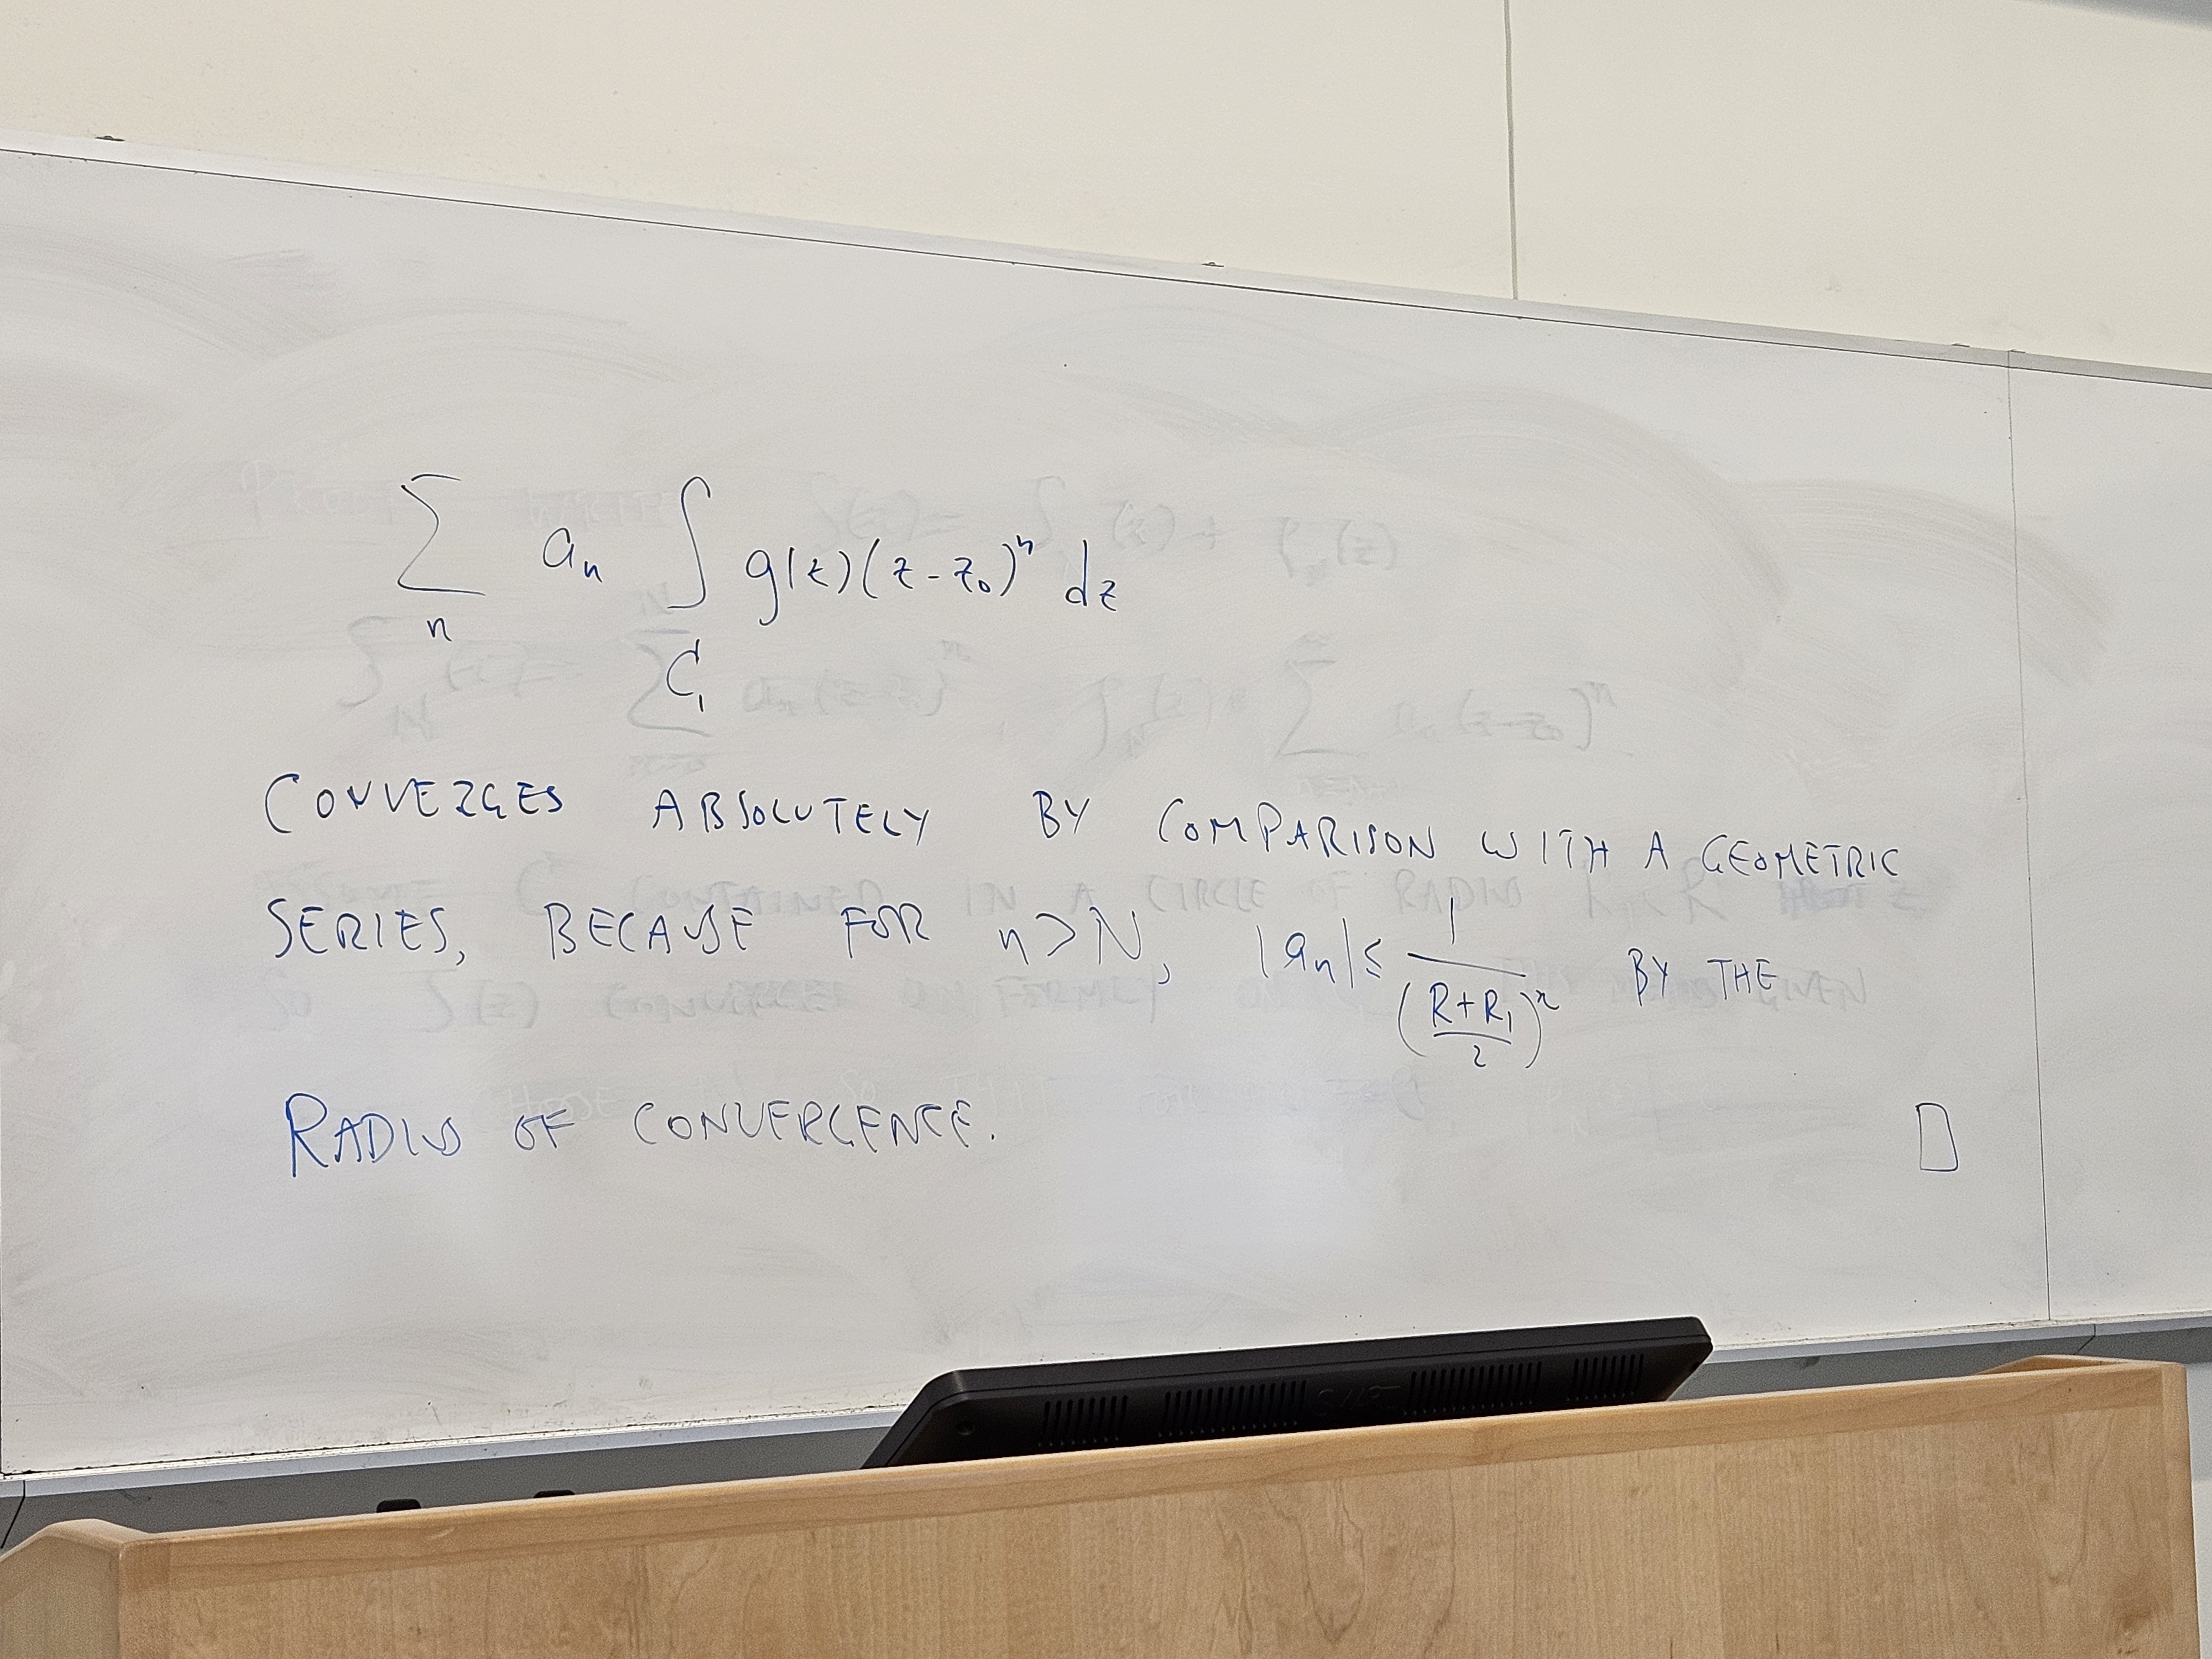 ∑_n a_n ∫_{C_1} g(z)(z-z_0)^n dz
CONVERGES ABSOLUTELY BY COMPARISON WITH A GEOMETRIC
SERIES, BECAUSE FOR n>N, |a_n| ≤ 1/((R+R_1)/2)^n BY THE
RADIUS OF CONVERGENCE. □